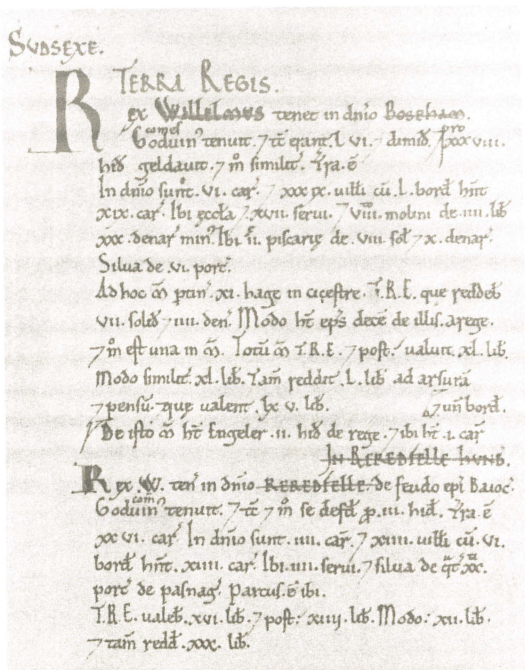 SUDSEXE.
TERRA REGIS.
Rex Willelmus tenet in dñio Boseham.
Goduin comes tenuit. ⁊ tc̄ erant. L VI. ⁊ dimid. ⁊ ꝓ xxx viii.
hid geldauit. ⁊ m̊ similit. T̄ra. ē
In dñio sunt. vi. car. ⁊ xxx ix. uilli cū. L. bord hñt
xix. car. Ibi æccła. ⁊ xvii. serui. ⁊ viii. molini de. iiii. lib
xxx. denar min. Ibi. ii. piscarię de. viii sol ⁊ x. denar.
Silua de. vi. porc.
Ad hoc m̄ ptin. xi. hage in cicestre. T.R.E. que reddeb
vii. solid ⁊ iiii. den. Modo ht ep̄s decē de illis. a rege.
⁊ m̊ est una in m̄. Totū m̄ T.R.E. ⁊ post. ualuit. xl. lib.
Modo similit. xl. lib. Tam̄ reddit. L. lib ad arsurā
⁊ pensū. que ualent. lx v. lib. ⁊ un bord.
De isto m̄ ht Engeler. ii. hid de rege. ⁊ ibi ht. i. car
IN REREDFELLE HUND.
Rex W. ten in dñio REREDFELLE. de feudo epi Baioc.
Goduin com tenuit. ⁊ tc̄ ⁊ m̊ se defd p. iii. hid. T̄ra. ē
xx vi. car. In dñio sunt. iiii. car. ⁊ xiiii. uilli cū. vi.
bord hñt. xiiii. car. Ibi. iiii. serui. ⁊ silua de qt xx.
porc de pasnag. Parcus. ē ibi.
T.R.E. ualeb. xvi. lib. ⁊ post. xiiij. lib. Modo. xii. lib.
⁊ tam̄ redd. xxx. lib.